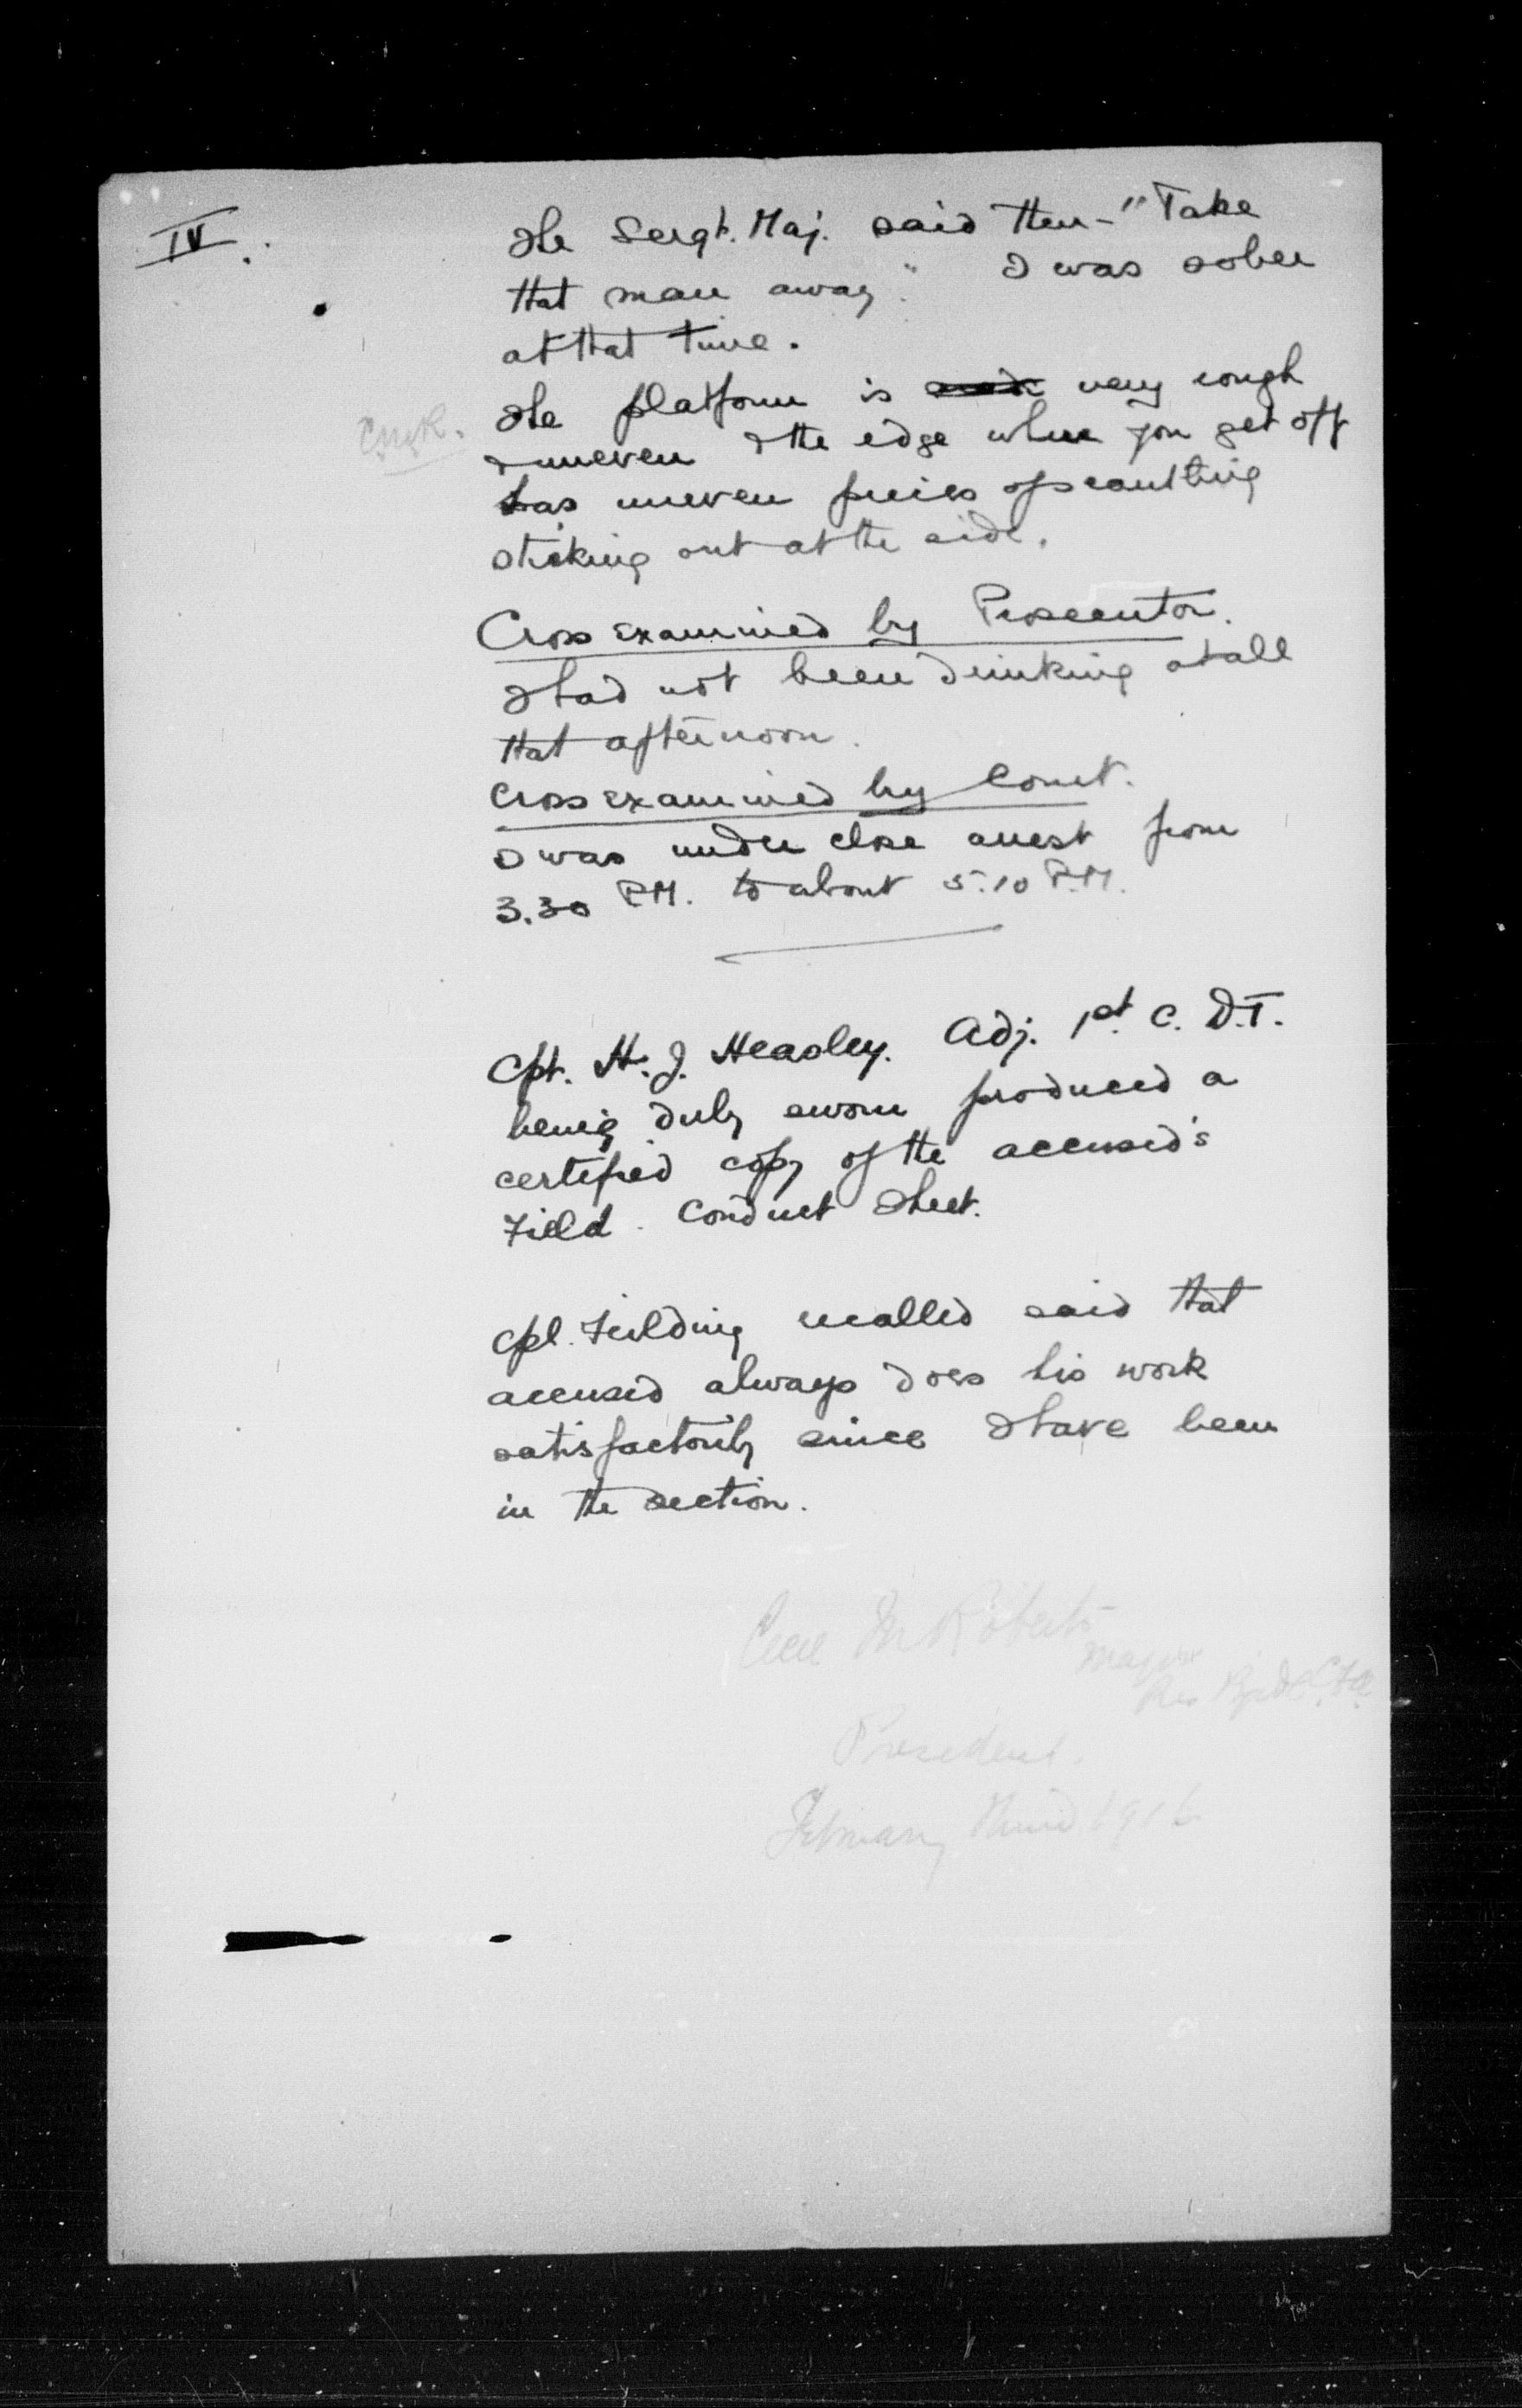 IV.
The Sergt. Maj. said then - "Take
that man away." I was sober
at that time.
The platform is very rough
& uneven & the edge where you get off
has uneven pieces of scantling
sticking out at the side.
CMR.
Cross examined by Prosecutor.
I had not been drinking at all
that afternoon.
Cross examined by Court.
I was under close arrest from
3.30 P.M. to about 5.10 P.M.
Cpt. H. J. Headley. Adj. 1st C. D.T.
being duly sworn produced a
certified copy of the accused's
Field Conduct Sheet.
Cpl. Fielding recalled said that
accused always does his work
satisfactorily since I have been
in the section.
Roberts
Major
President.
February 1916